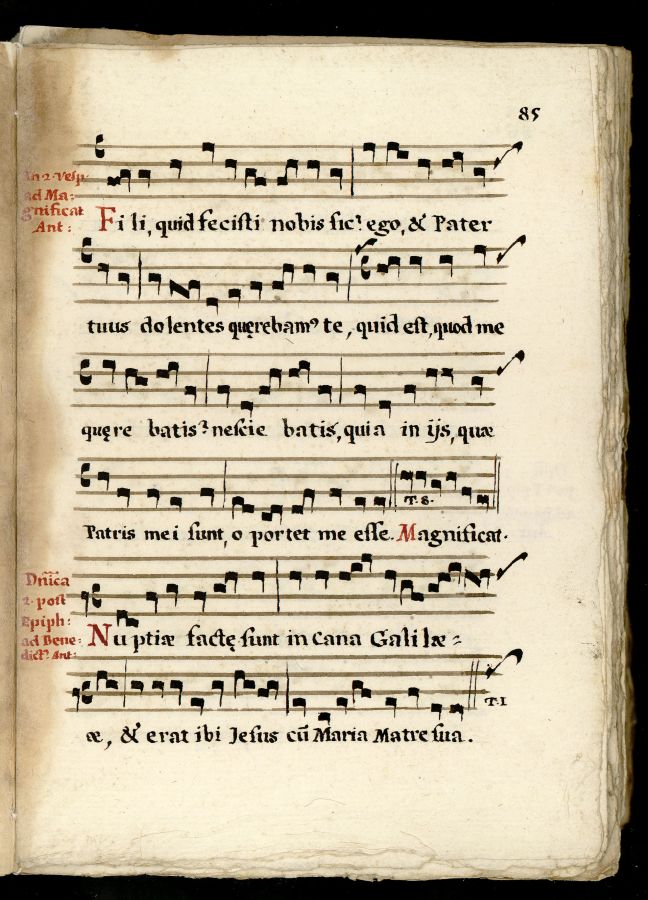 85
In 2. Vesp.
ad Ma:
gnificat
Ant:
Fi li, quid fecisti nobis sic? ego, & Pater
tuus dolentes quęrebamꝰ te, quid est, quod me
quęre batis? nescie batis, quia in ijs, quæ
T. 8.
Patris mei sunt, o portet me esse. Magnificat.
Dñica
2. post
Epiph:
ad Bene:
dictꝰ Ant:
Nu ptiæ factę sunt in Cana Galilæ =
T. I
æ, & erat ibi Jesus cũ Maria Matre sua.